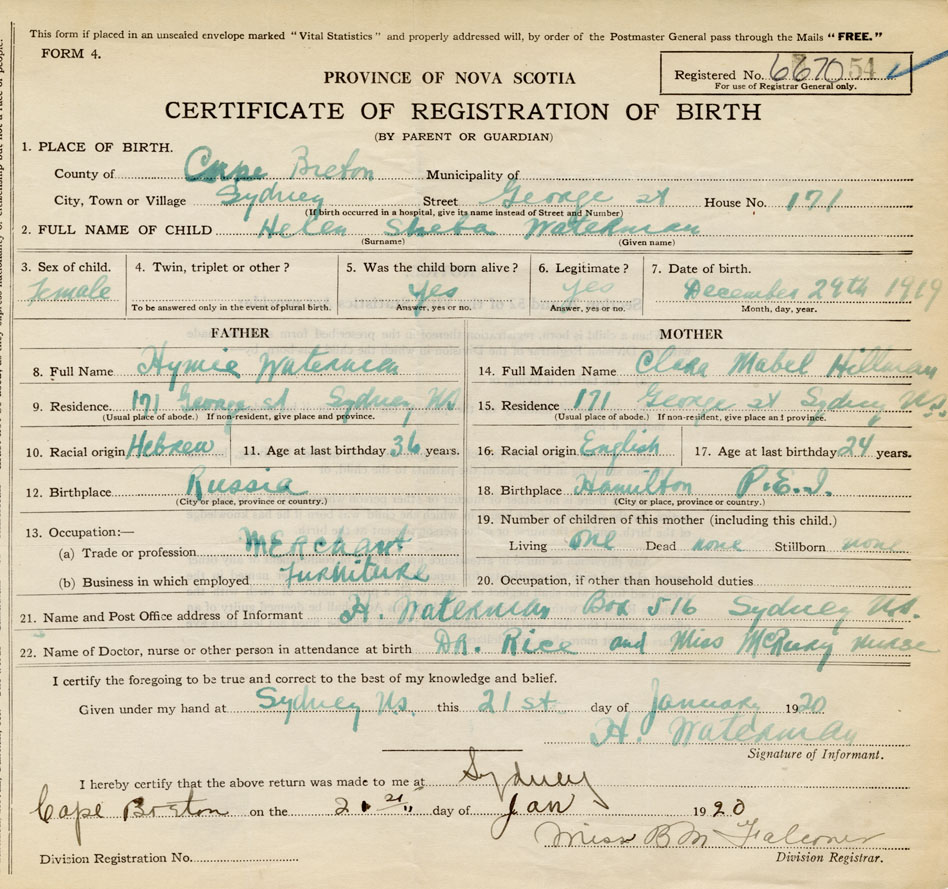 This form if placed in an unsealed envelope marked "Vital Statistics" and properly addressed will, by order of the Postmaster General pass through the Mails "FREE."
FORM 4.
Registered No. 667054
For use of Registrar General only.
PROVINCE OF NOVA SCOTIA
CERTIFICATE OF REGISTRATION OF BIRTH
(BY PARENT OR GUARDIAN)
1. PLACE OF BIRTH.
County of Cape Breton Municipality of
City, Town or Village Sydney Street George st House No. 171
(If birth occurred in a hospital, give its name instead of Street and Number)
2. FULL NAME OF CHILD Helen Sheba Waterman
(Surname) (Given name)
3. Sex of child. 4. Twin, triplet or other? 5. Was the child born alive? 6. Legitimate? 7. Date of birth.
Female yes yes December 29th 1919
To be answered only in the event of plural birth. Answer, yes or no. Answer, yes or no. Month, day, year.
FATHER MOTHER
8. Full Name Hymie Waterman 14. Full Maiden Name Clara Mabel Hillman
9. Residence 171 George st Sydney NS 15. Residence 171 George st Sydney N.S.
(Usual place of abode.) If non-resident, give place and province. (Usual place of abode.) If non-resident, give place and province.
10. Racial origin Hebrew 11. Age at last birthday 36 years. 16. Racial origin English 17. Age at last birthday 24 years.
12. Birthplace Russia 18. Birthplace Hamilton P.E.I.
(City or place, province or country.) (City or place, province or country.)
13. Occupation:— 19. Number of children of this mother (including this child.)
(a) Trade or profession MErchant Living one Dead none Stillborn none
(b) Business in which employed furniture 20. Occupation, if other than household duties
21. Name and Post Office address of Informant H. Waterman Box 516 Sydney N.S.
22. Name of Doctor, nurse or other person in attendance at birth DR. Rice and Miss nurse
I certify the foregoing to be true and correct to the best of my knowledge and belief.
Given under my hand at Sydney N.S. this 21 st day of January 1920
H. Waterman
Signature of Informant.
I hereby certify that the above return was made to me at Sydney
Cape Breton on the 21 day of Jan 1920
Miss B M Falconer
Division Registration No. Division Registrar.